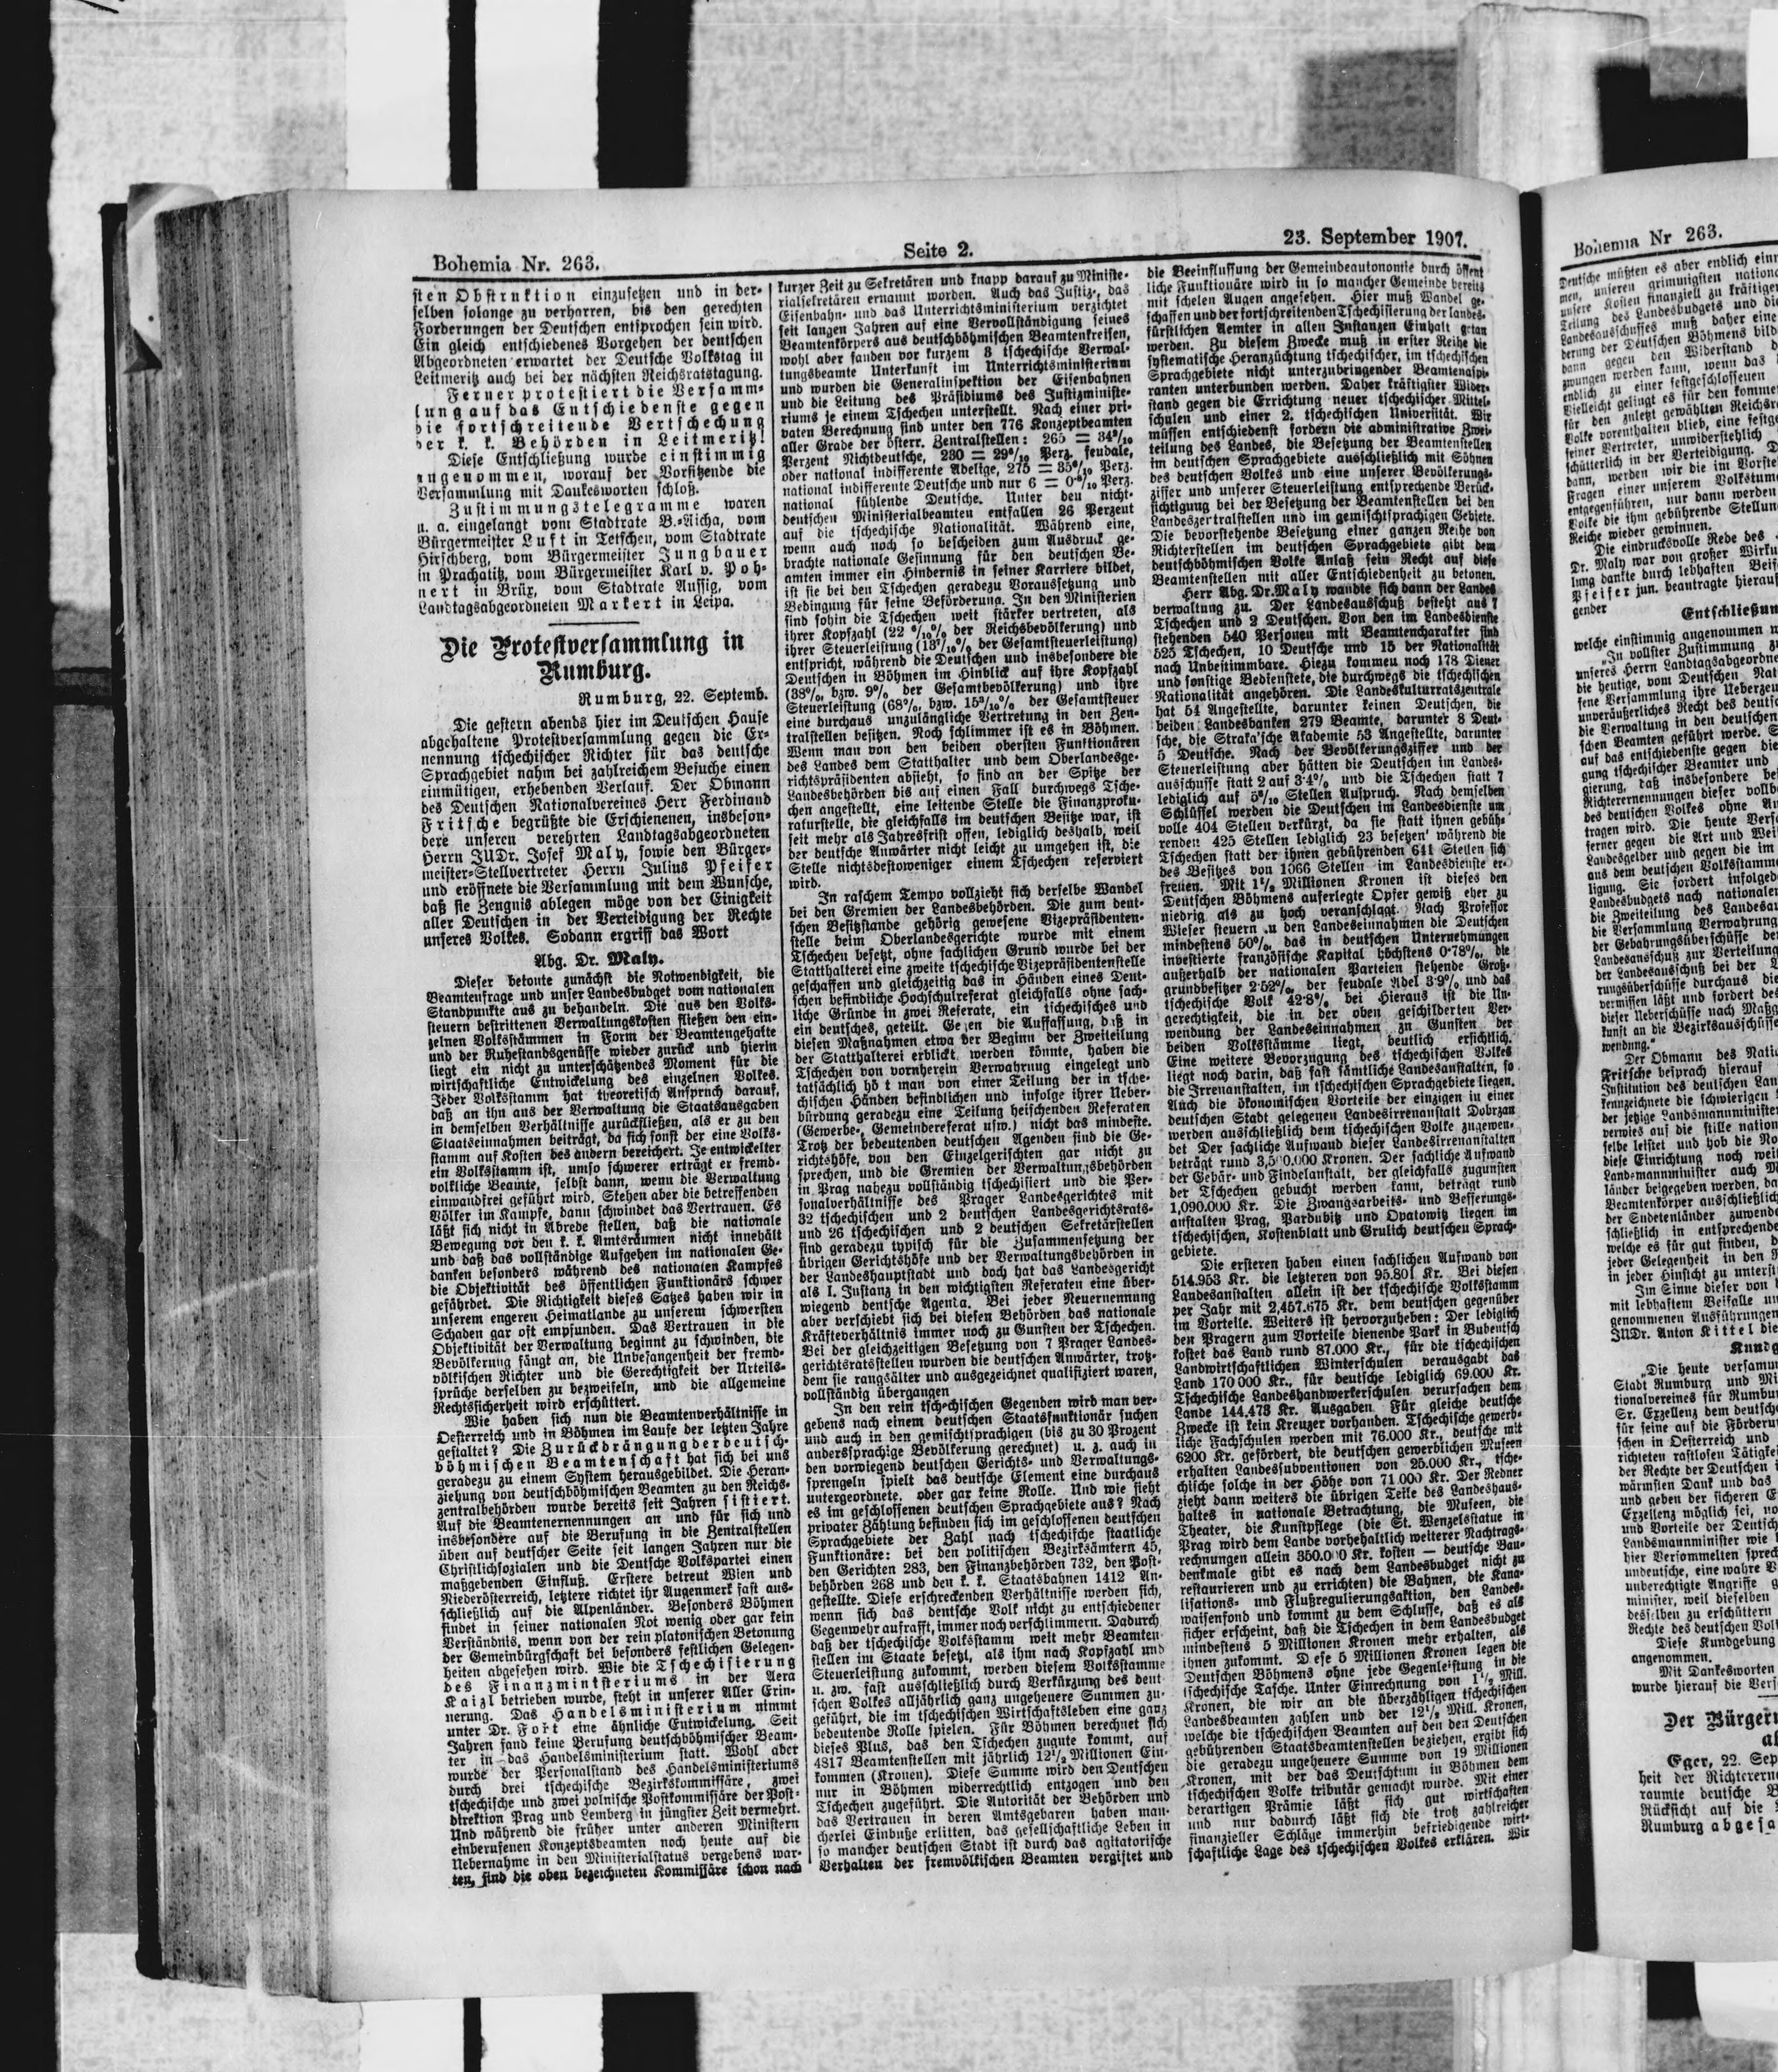 Bohemia Nr. 263.
Seite 2.
23. September 1907.
sten Obstruktion einzusetzen und in der-
selben solange zu verharren, bis den gerechten
Forderungen der Deutschen entsprochen sein wird.
Ein gleich entschiedenes Vorgehen der deutschen
Abgeordneten erwartet der Deutsche Volkstag in
Leitmeritz auch bei der nächsten Reichsratstagung.
Ferner protestiert die Versamm-
lung auf das Entschiedenste gegen
die fortschreitende Vertschechung
der k. k. Behörden in Leitmeritz!
Diese Entschließung wurde einstimmig
angenommen, worauf der Vorsitzende die
Versammlung mit Dankesworten schloß.
Zustimmungstelegramme waren
u. a. eingelangt vom Stadtrate B.-Aicha, vom
Bürgermeister Luft in Tetschen, vom Stadtrate
Hirschberg, vom Bürgermeister Jungbauer
in Prachatitz, vom Bürgermeister Karl v. Poh-
nert in Brüx, vom Stadtrate Aussig, vom
Landtagsabgeordneten Markert in Leipa.
Die Protestversammlung in
Rumburg.
Rumburg, 22. Septemb.
Die gestern abends hier im Deutschen Hause
abgehaltene Protestversammlung gegen die Er-
nennung tschechischer Richter für das deutsche
Sprachgebiet nahm bei zahlreichem Besuche einen
einmütigen, erhebenden Verlauf. Der Obmann
des Deutschen Nationalvereines Herr Ferdinand
Fritsche begrüßte die Erschienenen, insbeson-
dere unseren verehrten Landtagsabgeordneten
Herrn JUDr. Josef Maly, sowie den Bürger-
meister-Stellvertreter Herrn Julius Pfeifer
und eröffnete die Versammlung mit dem Wunsche,
daß sie Zeugnis ablegen möge von der Einigkeit
aller Deutschen in der Verteidigung der Rechte
unseres Volkes. Sodann ergriff das Wort
Abg. Dr. Maly.
Dieser betonte zunächst die Notwendigkeit, die
Beamtenfrage und unser Landesbudget vom nationalen
Standpunkte aus zu behandeln. Die aus den Volks-
steuern bestrittenen Verwaltungskosten fließen den ein-
zelnen Volksstämmen in Form der Beamtengehalte
und der Ruhestandsgenüsse wieder zurück und hierin
liegt ein nicht zu unterschätzendes Moment für die
wirtschaftliche Entwickelung des einzelnen Volkes.
Jeder Volksstamm hat theoretisch Anspruch darauf,
daß an ihn aus der Verwaltung die Staatsausgaben
in demselben Verhältnisse zurückfließen, als er zu den
Staatseinnahmen beiträgt, da sich sonst der eine Volks-
stamm auf Kosten des andern bereichert. Je entwickelter
ein Volksstamm ist, umso schwerer erträgt er fremd-
volkliche Beamte, selbst dann, wenn die Verwaltung
einwandfrei geführt wird. Stehen aber die betreffenden
Völker im Kampfe, dann schwindet das Vertrauen. Es
läßt sich nicht in Abrede stellen, daß die nationale
Bewegung vor den k. k. Amtsräumen nicht innehält
und daß das vollständige Aufgehen im nationalen Ge-
danken besonders während des nationalen Kampfes
die Objektivität des öffentlichen Funktionärs schwer
gefährdet. Die Richtigkeit dieses Satzes haben wir in
unserem engeren Heimatlande zu unserem schwersten
Schaden gar oft empfunden. Das Vertrauen in die
Objektivität der Verwaltung beginnt zu schwinden, die
Bevölkerung fängt an, die Unbefangenheit der fremd-
völkischen Richter und die Gerechtigkeit der Urteils-
sprüche derselben zu bezweifeln, und die allgemeine
Rechtssicherheit wird erschüttert.
Wie haben sich nun die Beamtenverhältnisse in
Oesterreich und in Böhmen im Laufe der letzten Jahre
gestaltet? Die Zurückdrängung der deutsch-
böhmischen Beamtenschaft hat sich bei uns
geradezu zu einem System herausgebildet. Die Heran-
ziehung von deutschböhmischen Beamten zu den Reichs-
zentralbehörden wurde bereits seit Jahren sistiert.
Auf die Beamtenernennungen an und für sich und
insbesondere auf die Berufung in die Zentralstellen
üben auf deutscher Seite seit langen Jahren nur die
Christlichsozialen und die Deutsche Volkspartei einen
maßgebenden Einfluß. Erstere betreut Wien und
Niederösterreich, letztere richtet ihr Augenmerk fast aus-
schließlich auf die Alpenländer. Besonders Böhmen
findet in seiner nationalen Not wenig oder gar kein
Verständnis, wenn von der rein platonischen Betonung
der Gemeinbürgschaft bei besonders festlichen Gelegen-
heiten abgesehen wird. Wie die Tschechisierung
des Finanzministeriums in der Aera
Kaizl betrieben wurde, steht in unserer Aller Erin-
nerung. Das Handelsministerium nimmt
unter Dr. Fort eine ähnliche Entwickelung. Seit
Jahren fand keine Berufung deutschböhmischer Beam-
ter in das Handelsministerium statt. Wohl aber
wurde der Personalstand des Handelsministeriums
durch drei tschechische Bezirkskommissäre, zwei
tschechische und zwei polnische Postkommissäre der Post-
direktion Prag und Lemberg in jüngster Zeit vermehrt.
Und während die früher unter anderen Ministern
einberufenen Konzeptsbeamten noch heute auf die
Uebernahme in den Ministerialstatus vergebens war-
ten, sind die oben bezeichneten Kommissäre schon nach
kurzer Zeit zu Sekretären und knapp darauf zu Ministe-
rialsekretären ernannt worden. Auch das Justiz-, das
Eisenbahn- und das Unterrichtsministerium verzichtet
seit langen Jahren auf eine Vervollständigung seines
Beamtenkörpers aus deutschböhmischen Beamtenkreisen,
wohl aber fanden vor kurzem 3 tschechische Verwal-
tungsbeamte Unterkunft im Unterrichtsministerium
und wurden die Generalinspektion der Eisenbahnen
und die Leitung des Präsidiums des Justizministe-
riums je einem Tschechen unterstellt. Nach einer pri-
vaten Berechnung sind unter den 776 Konzeptbeamten
aller Grade der österr. Zentralstellen: 265 =
Perzent Nichtdeutsche, 230 = Perz. feudale,
oder national indifferente Adelige, 275 = Perz.
national indifferente Deutsche und nur 6 = Perz.
national fühlende Deutsche. Unter den nicht-
deutschen Ministerialbeamten entfallen 26 Perzent
auf die tschechische Nationalität. Während eine,
wenn auch noch so bescheiden zum Ausdruck ge-
brachte nationale Gesinnung für den deutschen Be-
amten immer ein Hindernis in seiner Karriere bildet,
ist sie bei den Tschechen geradezu Voraussetzung und
Bedingung für seine Beförderung. In den Ministerien
sind sohin die Tschechen weit stärker vertreten, als
ihrer Kopfzahl (22 % der Reichsbevölkerung) und
ihrer Steuerleistung ( % der Gesamtsteuerleistung)
entspricht, während die Deutschen und insbesondere die
Deutschen in Böhmen im Hinblick auf ihre Kopfzahl
(38%, bzw. 9% der Gesamtbevölkerung) und ihre
Steuerleistung (68%, bzw. % der Gesamtsteuer
eine durchaus unzulängliche Vertretung in den Zen-
tralstellen besitzen. Noch schlimmer ist es in Böhmen.
Wenn man von den beiden obersten Funktionären
des Landes dem Statthalter und dem Oberlandesge-
richtspräsidenten absieht, so sind an der Spitze der
Landesbehörden bis auf einen Fall durchwegs Tsche-
chen angestellt, eine leitende Stelle die Finanzproku-
raturstelle, die gleichfalls im deutschen Besitze war, ist
seit mehr als Jahresfrist offen, lediglich deshalb, weil
der deutsche Anwärter nicht leicht zu umgehen ist, die
Stelle nichtsdestoweniger einem Tschechen reserviert
wird.
In raschem Tempo vollzieht sich derselbe Wandel
bei den Gremien der Landesbehörden. Die zum deut-
schen Besitzstande gehörig gewesene Vizepräsidenten-
stelle beim Oberlandesgerichte wurde mit einem
Tschechen besetzt, ohne sachlichen Grund wurde bei der
Statthalterei eine zweite tschechische Vizepräsidentenstelle
geschaffen und gleichzeitig das in Händen eines Deut-
schen befindliche Hochschulreferat gleichfalls ohne sach-
liche Gründe in zwei Referate, ein tschechisches und
ein deutsches, geteilt. Gegen die Auffassung, daß in
diesen Maßnahmen etwa der Beginn der Zweiteilung
der Statthalterei erblickt werden könnte, haben die
Tschechen von vornherein Verwahrung eingelegt und
tatsächlich hö t man von einer Teilung der in tsche-
chischen Händen befindlichen und infolge ihrer Ueber-
bürdung geradezu eine Teilung heischenden Referaten
(Gewerbe-, Gemeindereferat usw.) nicht das mindeste.
Trotz der bedeutenden deutschen Agenden sind die Ge-
richtshöfe, von den Einzelgerischten gar nicht zu
sprechen, und die Gremien der Verwaltungsbehörden
in Prag nahezu vollständig tschechisiert und die Per-
sonalverhältnisse des Prager Landesgerichtes mit
32 tschechischen und 2 deutschen Landesgerichtsrats-
und 26 tschechischen und 2 deutschen Sekretärstellen
sind geradezu typisch für die Zusammensetzung der
übrigen Gerichtshöfe und der Verwaltungsbehörden in
der Landeshauptstadt und doch hat das Landesgericht
als I. Instanz in den wichtigsten Referaten eine über-
wiegend deutsche Agenta. Bei jeder Neuernennung
aber verschiebt sich bei diesen Behörden das nationale
Kräfteverhältnis immer noch zu Gunsten der Tschechen.
Bei der gleichzeitigen Besetzung von 7 Prager Landes-
gerichtsratsstellen wurden die deutschen Anwärter, trotz-
dem sie rangsälter und ausgezeichnet qualifiziert waren,
vollständig übergangen
In den rein tschechischen Gegenden wird man ver-
gebens nach einem deutschen Staatsfunktionär suchen
und auch in den gemischtsprachigen (bis zu 30 Prozent
anderssprachige Bevölkerung gerechnet) u. z. auch in
den vorwiegend deutschen Gerichts- und Verwaltungs-
sprengeln spielt das deutsche Element eine durchaus
untergeordnete, oder gar keine Rolle. Und wie sieht
es im geschlossenen deutschen Sprachgebiete aus? Nach
privater Zählung befinden sich im geschlossenen deutschen
Sprachgebiete der Zahl nach tschechische staatliche
Funktionäre: bei den politischen Bezirksämtern 45,
den Gerichten 283, den Finanzbehörden 732, den Post-
behörden 268 und den k. k. Staatsbahnen 1412 An-
gestellte. Diese erschreckenden Verhältnisse werden sich,
wenn sich das deutsche Volk nicht zu entschiedener
Gegenwehr aufrafft, immer noch verschlimmern. Dadurch
daß der tschechische Volksstamm weit mehr Beamten-
stellen im Staate besetzt, als ihm nach Kopfzahl und
Steuerleistung zukommt, werden diesem Volksstamme
u. zw. fast ausschließlich durch Verkürzung des deut-
schen Volkes alljährlich ganz ungeheuere Summen zu-
geführt, die im tschechischen Wirtschaftsleben eine ganz
bedeutende Rolle spielen. Für Böhmen berechnet sich
dieses Plus, das den Tschechen zugute kommt, auf
4817 Beamtenstellen mit jährlich 12½ Millionen Ein-
kommen (Kronen). Diese Summe wird den Deutschen
nur in Böhmen widerrechtlich entzogen und den
Tschechen zugeführt. Die Autorität der Behörden und
das Vertrauen in deren Amtsgebaren haben man-
cherlei Einbuße erlitten, das gesellschaftliche Leben in
so mancher deutschen Stadt ist durch das agitatorische
Verhalten der fremvölkischen Beamten vergiftet und
die Beeinflussung der Gemeindeautonomie durch öffent
liche Funktionäre wird in so mancher Gemeinde bereits
mit scheelen Augen angesehen. Hier muß Wandel ge-
schaffen und der fortschreitenden Tschechisierung der landes-
fürstlichen Aemter in allen Instanzen Einhalt getan
werden. Zu diesem Zwecke muß in erster Reihe die
systematische Heranzüchtung tschechischer, im tschechischen
Sprachgebiete nicht unterzubringender Beamtenaspi-
ranten unterbunden werden. Daher kräftigster Wider-
stand gegen die Errichtung neuer tschechischer Mittel-
schulen und einer 2. tschechischen Universität. Wir
müssen entschiedenst fordern die administrative Zwei-
teilung des Landes, die Besetzung der Beamtenstellen
im deutschen Sprachgebiete ausschließlich mit Söhnen
des deutschen Volkes und eine unserer Bevölkerungs-
ziffer und unserer Steuerleistung entsprechende Berück-
sichtigung bei der Besetzung der Beamtenstellen bei den
Landeszertralstellen und im gemischtsprachigen Gebiete.
Die bevorstehende Besetzung einer ganzen Reihe von
Richterstellen im deutschen Sprachgebiete gibt dem
deutschböhmischen Volke Anlaß sein Recht auf diese
Beamtenstellen mit aller Entschiedenheit zu betonen.
Herr Abg. Dr. Maly wandte sich dann der Landes
verwaltung zu. Der Landesausschuß besteht aus 7
Tschechen und 2 Deutschen. Von den im Landesdienste
stehenden 540 Personen mit Beamtencharakter sind
525 Tschechen, 10 Deutsche und 15 der Nationalität
nach Unbestimmbare. Hiezu kommen noch 178 Diener
und sonstige Bedienstete, die durchwegs die tschechischen
Nationalität angehören. Die Landeskulturratszentrale
hat 54 Angestellte, darunter keinen Deutschen, die
beiden Landesbanken 279 Beamte, darunter 8 Deut-
sche, die Straka'sche Akademie 53 Angestellte, darunter
5 Deutsche. Nach der Bevölkerungsziffer und der
Steuerleistung aber hätten die Deutschen im Landes-
ausschusse statt 2 auf 3·4% und die Tschechen statt 7
lediglich auf Stellen Anspruch. Nach demselben
Schlüssel werden die Deutschen im Landesdienste um
volle 404 Stellen verkürzt, da sie statt ihnen gebüh-
renden 425 Stellen lediglich 23 besetzen' während die
Tschechen statt der ihnen gebührenden 641 Stellen sich
des Besitzes von 1066 Stellen im Landesdienste er-
freuen. Mit 1½ Millionen Kronen ist dieses den
Deutschen Böhmens auferlegte Opfer gewiß eher zu
niedrig als zu hoch veranschlagt. Nach Professor
Wieser steuern zu den Landeseinnahmen die Deutschen
mindestens 50%, das in deutschen Unternehmungen
investierte französische Kapital höchstens 0·78%, die
außerhalb der nationalen Parteien stehende Groß-
grundbesitzer 2·52%, der feudale Adel 3·9% und das
tschechische Volk 42·8% bei Hieraus ist die Un-
gerechtigkeit, die in der oben geschilderten Ver-
wendung der Landeseinnahmen zu Gunsten der
beiden Volksstämme liegt, deutlich ersichtlich.
Eine weitere Bevorzugung des tschechischen Volkes
liegt noch darin, daß fast sämtliche Landesanstalten, so
die Irrenanstalten, im tschechischen Sprachgebiete liegen.
Auch die ökonomischen Vorteile der einzigen in einer
deutschen Stadt gelegenen Landesirrenanstalt Dobrzan
werden ausschließlich dem tschechischen Volke zugewen-
det Der sachliche Aufwand dieser Landesirrenanstalten
beträgt rund 3,500.000 Kronen. Der sachliche Aufwand
der Gebär- und Findelanstalt, der gleichfalls zugunsten
der Tschechen gebucht werden kann, beträgt rund
1,090.000 Kr. Die Zwangsarbeits- und Besserungs-
anstalten Prag, Pardubitz und Opatowitz liegen im
tschechischen, Kostenblatt und Grulich deutschen Sprach-
gebiete.
Die ersteren haben einen sachlichen Aufwand von
514.953 Kr. die letzteren von 95.801 Kr. Bei diesen
Landesanstalten allein ist der tschechische Volksstamm
per Jahr mit 2,457.675 Kr. dem deutschen gegenüber
im Vorteile. Weiters ist hervorzuheben: Der lediglich
den Pragern zum Vorteile dienende Park in Bubentsch
kostet das Land rund 87.000 Kr., für die tschechischen
Landwirtschaftlichen Winterschulen verausgabt das
Land 170 000 Kr., für deutsche lediglich 69.000 Kr.
Tschechische Landeshandwerkerschulen verursachen dem
Lande 144.478 Kr. Ausgaben. Für gleiche deutsche
Zwecke ist kein Kreuzer vorhanden. Tschechische gewerb-
liche Fachschulen werden mit 76.000 Kr., deutsche mit
6200 Kr. gefördert, die deutschen gewerblichen Museen
erhalten Landessubventionen von 25.000 Kr., tsche-
chische solche in der Höhe von 71 000 Kr. Der Redner
zieht dann weiters die übrigen Teile des Landeshaus-
haltes in nationale Betrachtung, die Museen, die
Theater, die Kunstpflege (die St. Wenzelsstatue in
Prag wird dem Lande vorbehaltlich weiterer Nachtrags-
rechnungen allein 350.000 Kr. kosten — deutsche Bau-
denkmale gibt es nach dem Landesbudget nicht zu
restaurieren und zu errichten) die Bahnen, die Kana-
lisations- und Flußregulierungsaktion, den Landes-
waisenfond und kommt zu dem Schlusse, daß es als
sicher erscheint, daß die Tschechen in dem Landesbudget
mindestens 5 Millionen Kronen mehr erhalten, als
ihnen zukommt. D ese 5 Millionen Kronen legen die
Deutschen Böhmens ohne jede Gegenleistung in die
tschechische Tasche. Unter Einrechnung von 1½ Mill.
Kronen, die wir an die überzähligen tschechischen
Landesbeamten zahlen und der 12½ Mill. Kronen,
welche die tschechischen Beamten auf den den Deutschen
gebührenden Staatsbeamtenstellen beziehen, ergibt sich
die geradezu ungeheuere Summe von 19 Millionen
Kronen, mit der das Deutschtum in Böhmen dem
tschechischen Volke tributär gemacht wurde. Mit einer
derartigen Prämie läßt sich gut wirtschaften
und nur dadurch läßt sich die trotz zahlreicher
finanzieller Schläge immerhin befriedigende wirt-
schaftliche Lage des tschechischen Volkes erklären. Wir
Bohemia Nr 263.
Deutsche müßten es aber endlich
men, unseren grimmigsten
unsere Kosten finanziell zu kräftigen
Teilung des Landesbudgets und die
Landesausschusses muß daher eine
derung der Deutschen Böhmens
dann gegen den Widerstand
zwungen werden kann, wenn das
endlich zu einer festgeschlossenen
Vielleicht gelingt es für den
für den zuletzt gewählten
Volke vorenthalten blieb, eine
seiner Vertreter, unwiderstehlich
schütterlich in der Verteidigung.
dann, werden wir die im
Fragen einer unserem
entgegenführen, nur dann werden
Volke die ihm gebührende
Reiche wieder gewinnen.
Die eindrucksvolle Rede des
Dr. Maly war von großer
lung dankte durch lebhaften
Pfeifer jun. beantragte hierauf
gender
welche einstimmig angenommen
„In vollster Zustimmung
unseres Herrn
die heutige, vom Deutschen
fene Versammlung ihre
unveräußerliches Recht des
die Verwaltung in den deutschen
schen Beamten geführt werde.
auf das entschiedenste gegen die
gung tschechischer Beamter und
gierung, daß insbesondere
Richterernennungen dieser
des deutschen Volkes ohne
tragen wird. Die heute
ferner gegen die Art und
Landesgelder und gegen die im
aus dem deutschen
ligung. Sie fordert
Landesbudgets nach nationalen
die Zweiteilung des
die Versammlung Verwahrung
der Gebahrungsüberschüsse
Landesausschuß zur Verteilung
der Landesausschuß bei der
rungsüberschüsse durchaus die
vermissen läßt und fordert
dieser Ueberschüsse nach
kunft an die
wendung."
Der Obmann des
Fritsche besprach hierauf
Institution des deutschen
kennzeichnete die schwierigen
der jetzige Landsmannminister
verwies auf die stille
selbe leistet und hob die
diese Einrichtung noch
Landsmannminister auch
länder beigegeben werden,
Beamtenkörper ausschließlich
der Sudetenländer
schließlich in entsprechende
welche es für gut finden,
jeder Gelegenheit in den
in jeder Hinsicht zu
Im Sinne dieser von
mit lebhaftem Beifalle
genommenen Ausführungen
JUDr. Anton Kittel die
„Die heute
Stadt Rumburg und
tionalvereines für
Sr. Exzellenz dem
für seine auf die
schen in Oesterreich und
richteten rastlosen
der Rechte der Deutschen
wärmsten Dank und das
und geben der sicheren
Exzellenz möglich sei,
und Vorteile der
Landsmannminister wie
hier Versammelten
undeutsche, eine wahre
unberechtigte Angriffe
minister, weil dieselben
desselben zu erschüttern
Rechte des deutschen
Diese Kundgebung
angenommen.
Mit Dankesworten
wurde hierauf die
Der
Eger, 22.
heit der
raumte deutsche
Rücksicht auf die
Rumburg